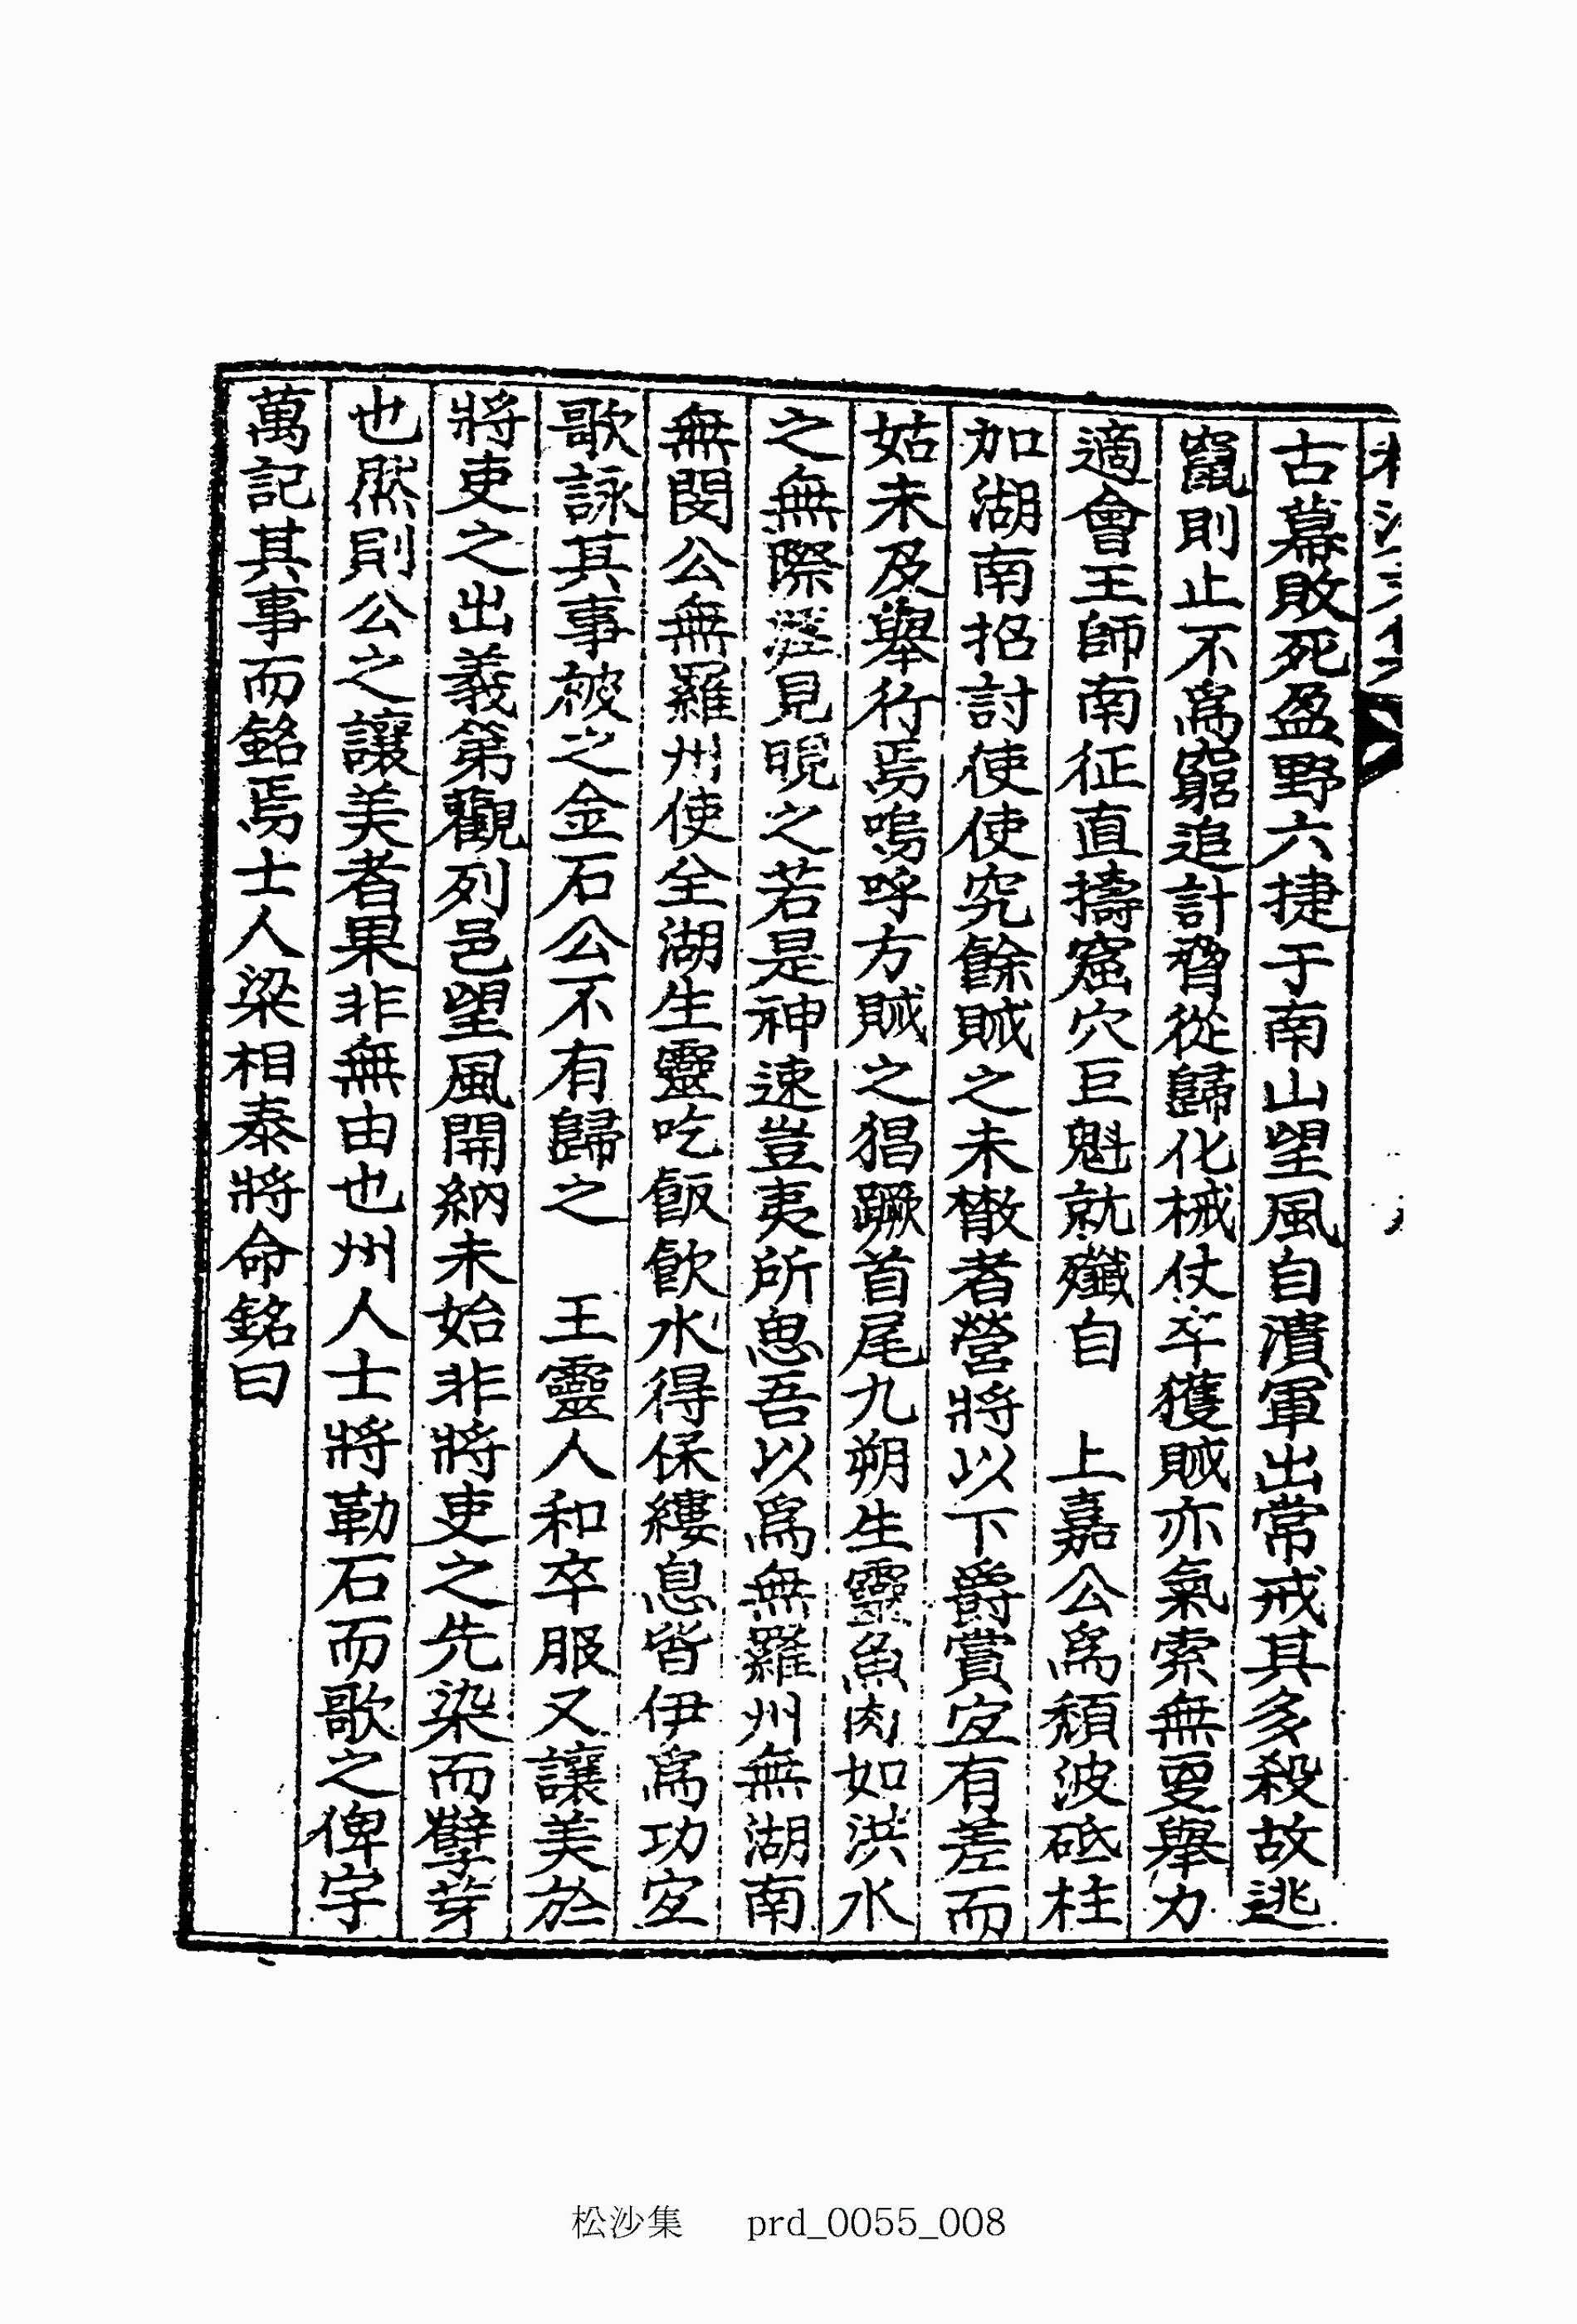 古幕敗死盈野六捷于南山望風自潰軍出常戒其多殺故逃
竄則止不爲窮追計脅從歸化械仗卒獲賊亦氣索無更擧力
適會王師南征直擣窟穴巨魁就殲自 上嘉公爲頹波砥柱
加湖南招討使使究餘賊之未散者營將以下爵賞宜有差而
姑未及擧行焉嗚呼方賊之猖蹶首尾九朔生靈魚肉如洪水
之無際 見晛之若是神速豈夷所思吾以爲無羅州無湖南
無閔公無羅州使全湖生靈吃飯飮水得保縷息皆伊爲功宜
歌詠其事被之金石公不有歸之 王靈人和卒服又讓美於
將吏之出義第觀列邑望風開納未始非將吏之先染而孽芽
也然則公之讓美者果非無由也州人士將勒石而歌之俾宇
萬記其事而銘焉士人梁相泰將命銘曰
松沙集 prd_0055_008